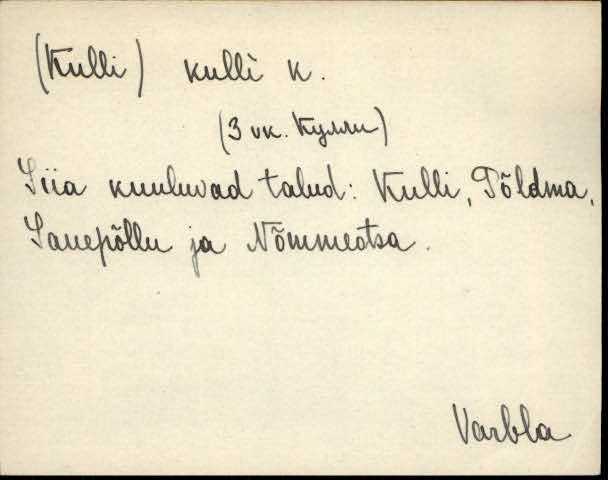 (Kulli) kulli k.
(3 vk. Кулли)
Siia kuuluvad talud: Kulli, Põldma,
Sauepõllu ja Nõmmeotsa.
Varbla